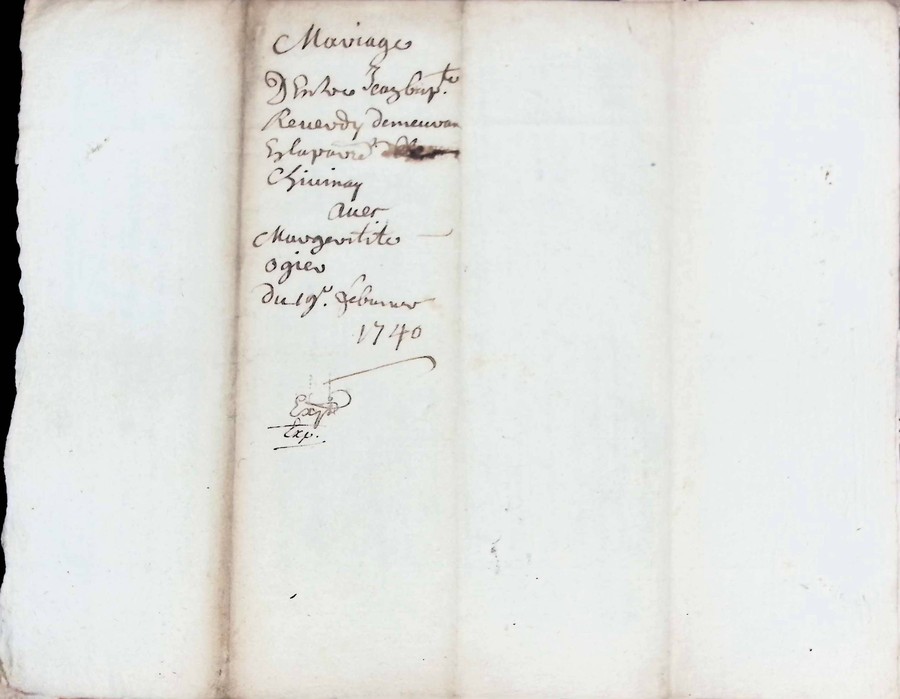 Mariage
D'Entre Jean bap.te
Reverdy demeuran
En la parroi
Chivinay
avec
Marguerittte
ogier
du 19e. febvrier
1740
Exp.